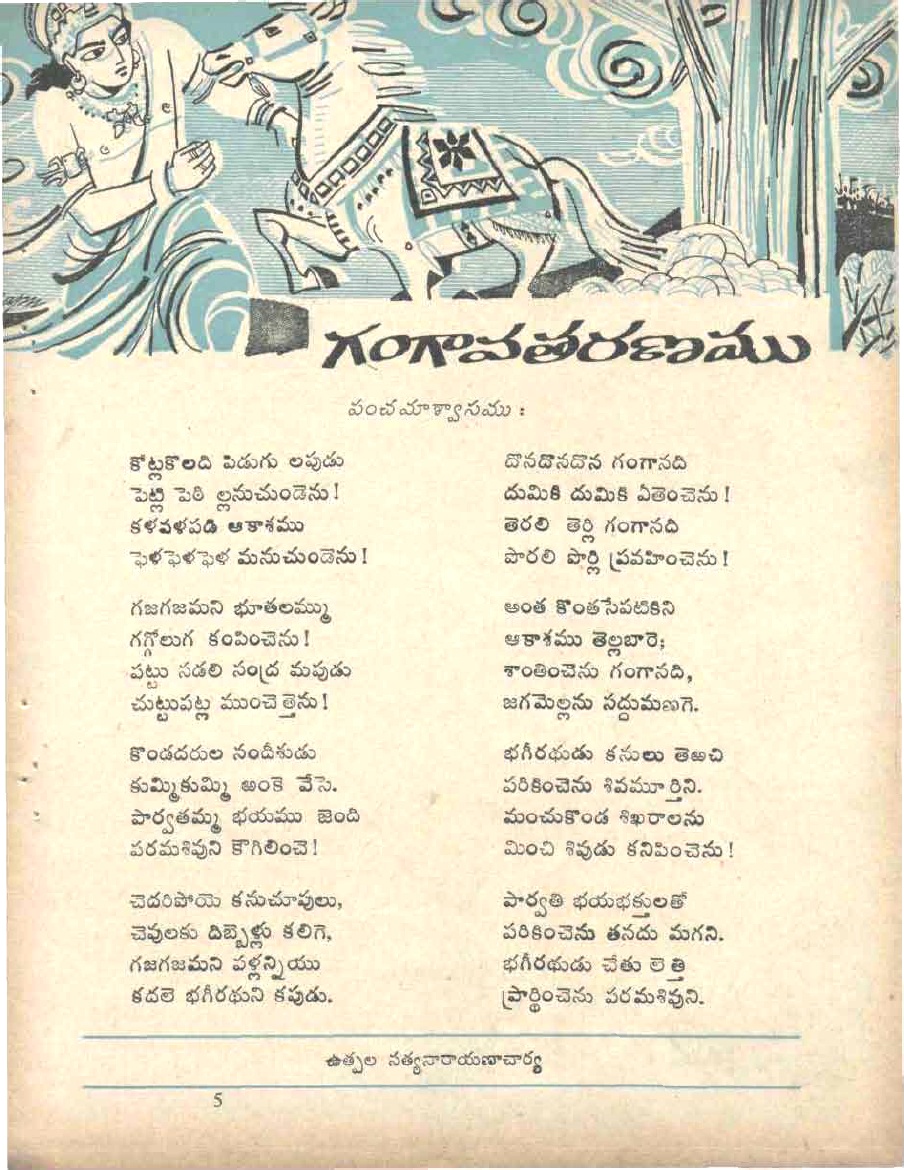 గంగావతరణము
పంచమాశ్వాసము :
కోట్లకొలది పిడుగు లపుడు
పెట్లి పెఠి ల్లనుచుండెను!
కళవళపడి ఆకాశము
ఫెళఫెళఫెళ మనుచుండెను!
గజగజమని భూతలమ్ము
గగ్గోలుగ కంపించెను!
పట్టు సడలి సంద్ర మపుడు
చుట్టుపట్ల ముంచెత్తెను!
కొండదరుల నందీశుడు
కుమ్మికుమ్మి అంకె వేసె.
పార్వతమ్మ భయము జెంది
పరమశివుని కౌగిలించె!
చెదరిపోయె కనుచూపులు,
చెవులకు దిబ్బెళ్లు కలిగె,
గజగజమని పళ్లన్నియు
కదలె భగీరథుని కపుడు.
దొనదొనదొన గంగానది
దుమికి దుమికి ఏతెంచెను!
తెరలి తెర్లి గంగానది
పొరలి పొర్లి ప్రవహించెను!
అంత కొంతసేపటికిని
ఆకాశము తెల్లబారె;
శాంతించెను గంగానది,
జగమెల్లను సద్దుమణగె.
భగీరథుడు కనులు తెఱచి
పరికించెను శివమూర్తిని.
మంచుకొండ శిఖరాలను
మించి శివుడు కనిపించెను!
పార్వతి భయభక్తులతో
పరికించెను తనదు మగని.
భగీరథుడు చేతు లెత్తి
ప్రార్థించెను పరమశివుని.
ఉత్పల సత్యనారాయణాచార్య
5